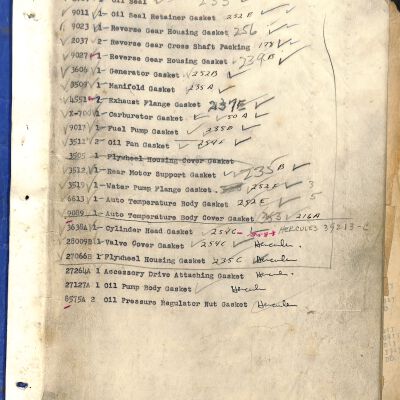 Oil Seal 233
9011 1- Oil Seal Retainer Gasket 252 E
9023 1- Reverse Gear Housing Gasket 256
2037 2- Reverse Gear Cross Shaft Packing 178
9027 1- Reverse Gear Housing Gasket 239B
3606 1- Generator Gasket 252B
3509 1- Manifold Gasket 235 A
4551 2 Exhaust Flange Gasket 237E
X-700 1- Carburetor Gasket 50 A
9017 1- Fuel Pump Gasket 235B
3511 2- Oil Pan Gasket 254E
3505 1- Flywheel Housing Cover Gasket
3512 1- Rear Motor Support Gasket 235B
3519 1- Water Pump Flange Gasket 252E 3
6613 1- Auto Temperature Body Gasket 252 E 5
9089 1- Auto Temperature Body Cover Gasket 253 216A
3638A 1- Cylinder Head Gasket 254C HERCULES 39213-C
28009B 1- Valve Cover Gasket 254C Hercules
27066B 1- Flywheel Housing Gasket 235C Hercules
27264A 1 Accessory Drive Attaching Gasket Hercules
27127A 1 Oil Pump Body Gasket Hercules
8575A 2 Oil Pressure Regulator Nut Gasket Hercules